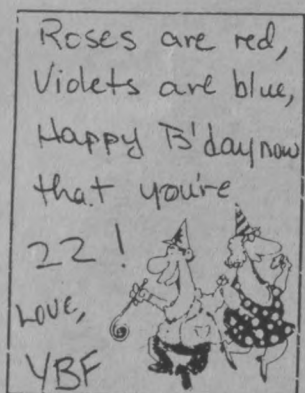 Roses are red,
Violets are blue,
Happy B'day now
that you're
22!
Love,
YBF